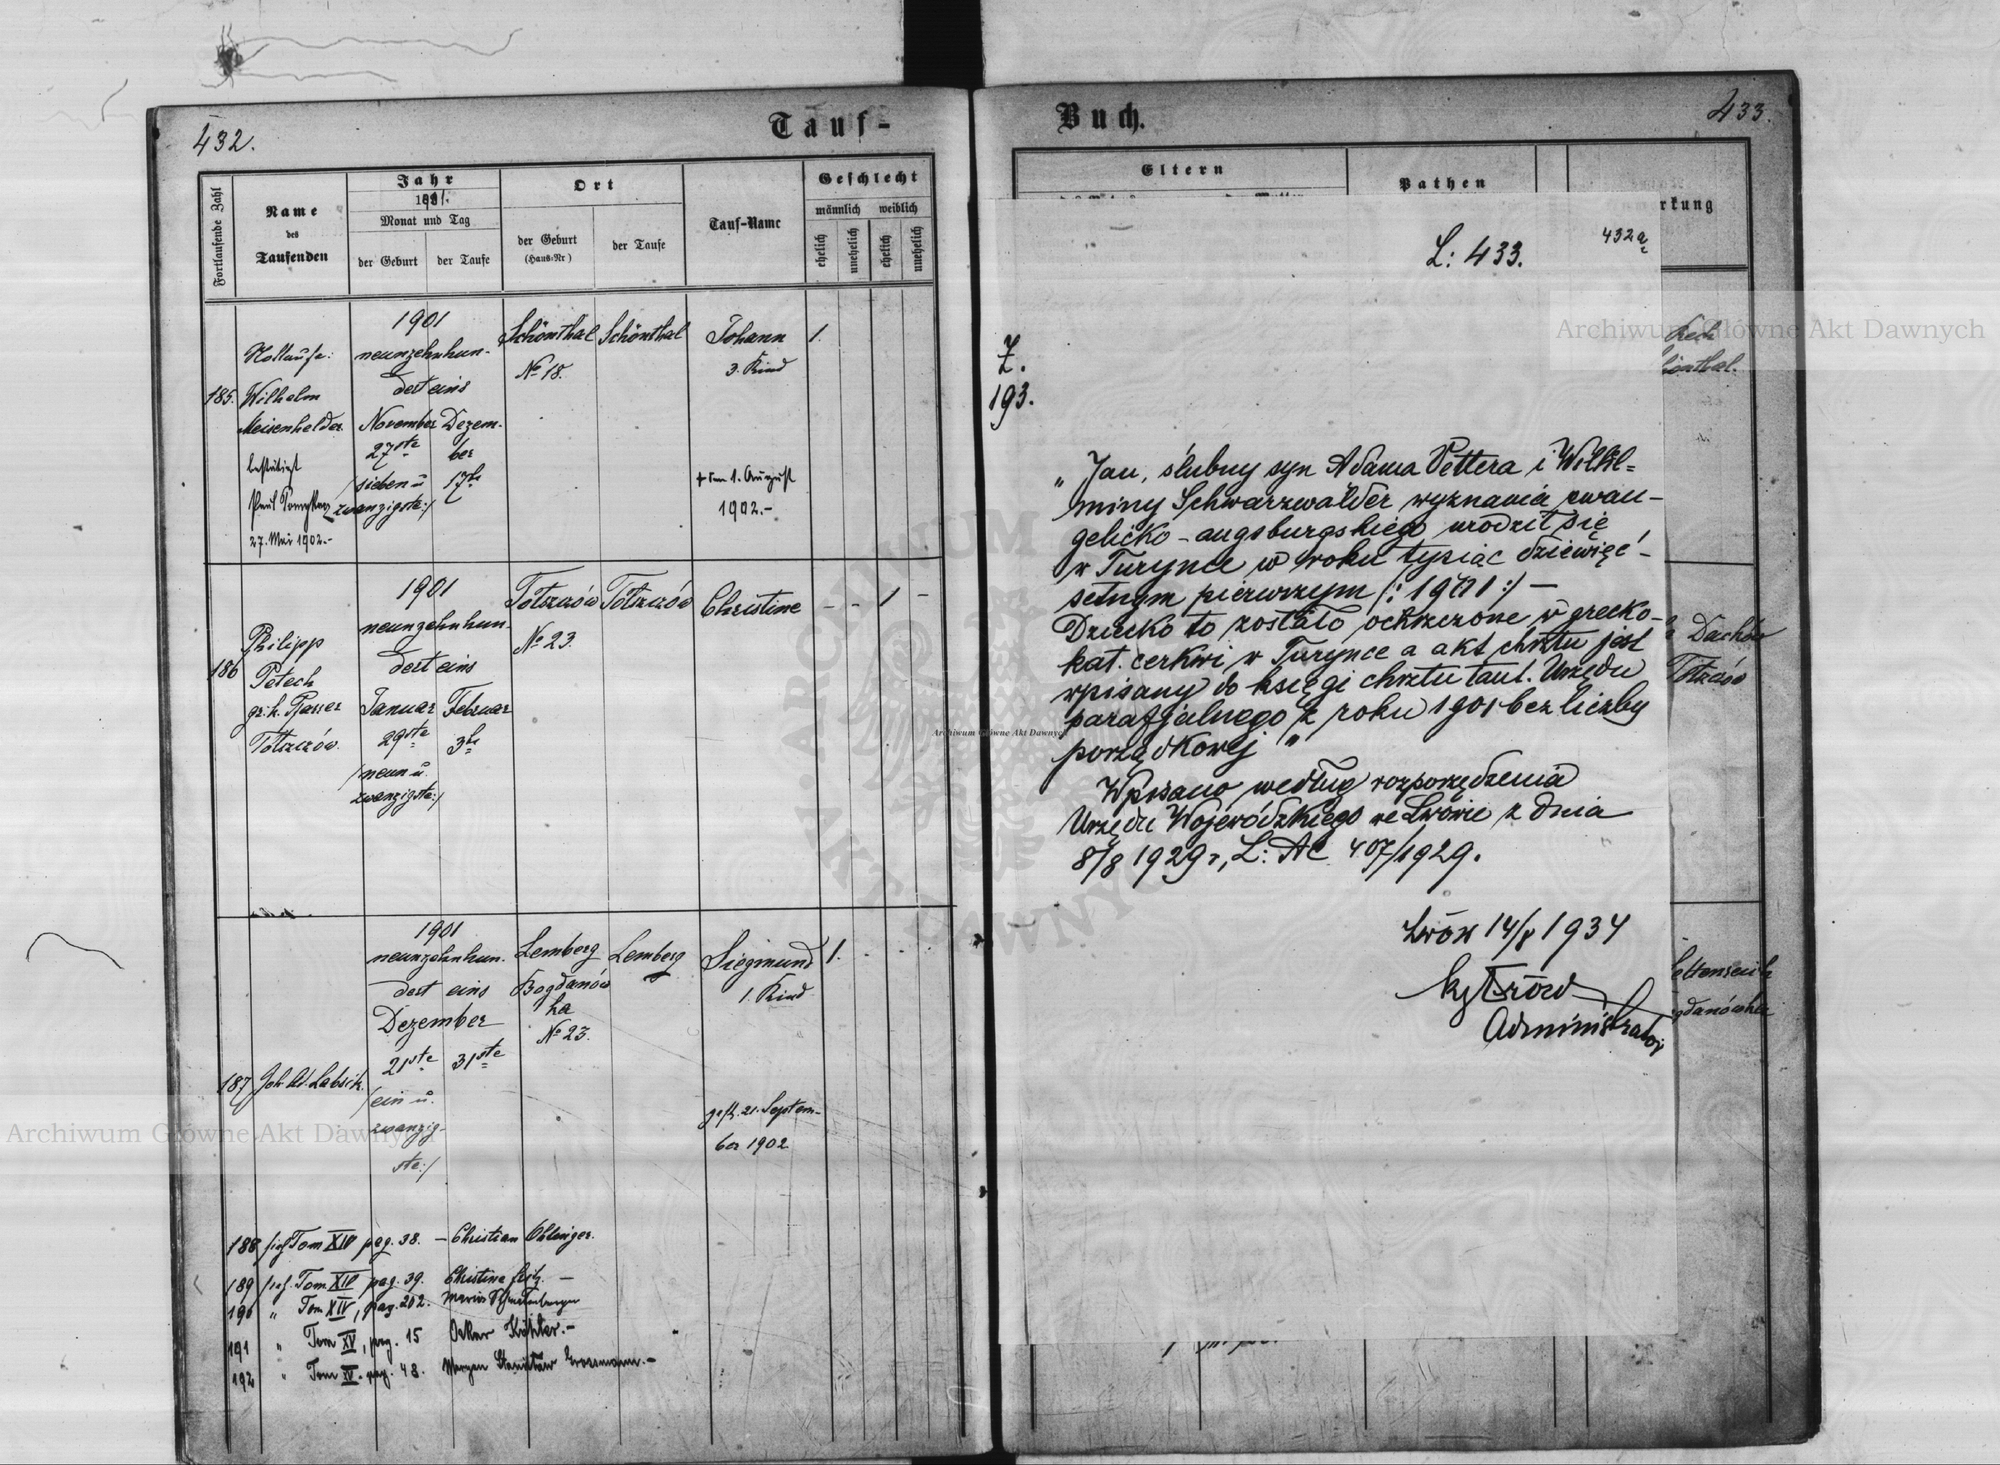 432.
Tauf-
Fortlaufende Zahl
Name
des
Taufenden
Jahr
1901.
Monat und Tag
der Geburt
der Taufe
Ort
der Geburt
(Haus-Nr)
der Taufe
Tauf-Name
Geschlecht
männlich weiblich
ehelich
unehelich
ehelich
unehelich
185.
Wilhelm
Meisenhelder
27. Mai 1902.-
1901
neunzehnhun-
dert eins
November Dezem-
27ste ber
/sieben u 17te
zwanzigste:/
Schönthal Schönthal
No 18.
Johann
3. Kind
1.
+ am 1. August
1902.-
186
Philipp
Petech
gr. k. Pfarrer
Tołszczów.
1901
neunzehnhun-
dert eins
Januar Februar
29ste 3te
/neun u.
zwanzigste:/
Tołszczów Tołszczów
No 23.
Christine
- - 1 -
187 Joh. Ad. Labsik.
1901
neunzehnhun-
dert eins
Dezember
21ste 31ste
/ein u.
zwanzig-
ste:/
Lemberg Lemberg
Bogdanów
ka
No 23.
Siegmund
1. Kind
1.
gest. 21. Septem-
ber 1902
188 Tom XIV pag. 38. - Christian Ohlinger.
189 Tom XIV pag. 39. Christine
190 " Tom XIV, pag. 202.
191 " Tom XV, pag. 15 Oskar
192 " Tom XV. pag. 48. Stanisław Grossmann.-
Buch.
433.
Eltern
Pathen
rkung
432a
L: 433.
Z.
193.
„Jan, ślubny syn Adama Vettera i Wilhel=
miny Schwarzwälder wyznania ewan-
gelicko-augsburgskiego urodził się
w Turynce w roku tysiąc dziewięć-
setnym pierwszym /: 1901 :/ —
Dziecko to zostało ochrzczone w grecko-
kat. cerkwi w Turynce a akt chrztu jest
wpisany do księgi chrztu taut. Urzędu
parafjalnego z roku 1901 bez liczby
porządkowej"
Wpisano według rozporządzenia
Urzędu Wojewódzkiego we Lwowie z dnia
8/8 1929 r, L: AC 407/1929.
Lwów 14/8 1934
Administrator
önthal.
Dachów
Tołszczów
gdanówka
Archiwum Główne Akt Dawnych
Archiwum Główne Akt Dawnych
Archiwum Główne Akt Dawnych
ARCHIWUM
AKT DAWNYCH